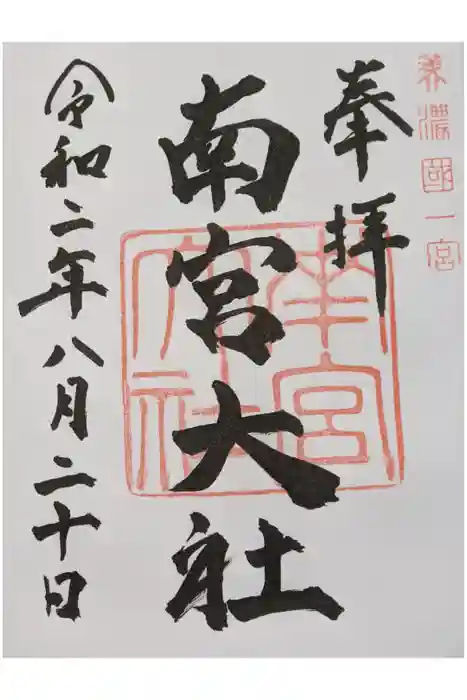 美濃國一宮
奉拝
南宮大社
南宮大社
令和二年八月二十日